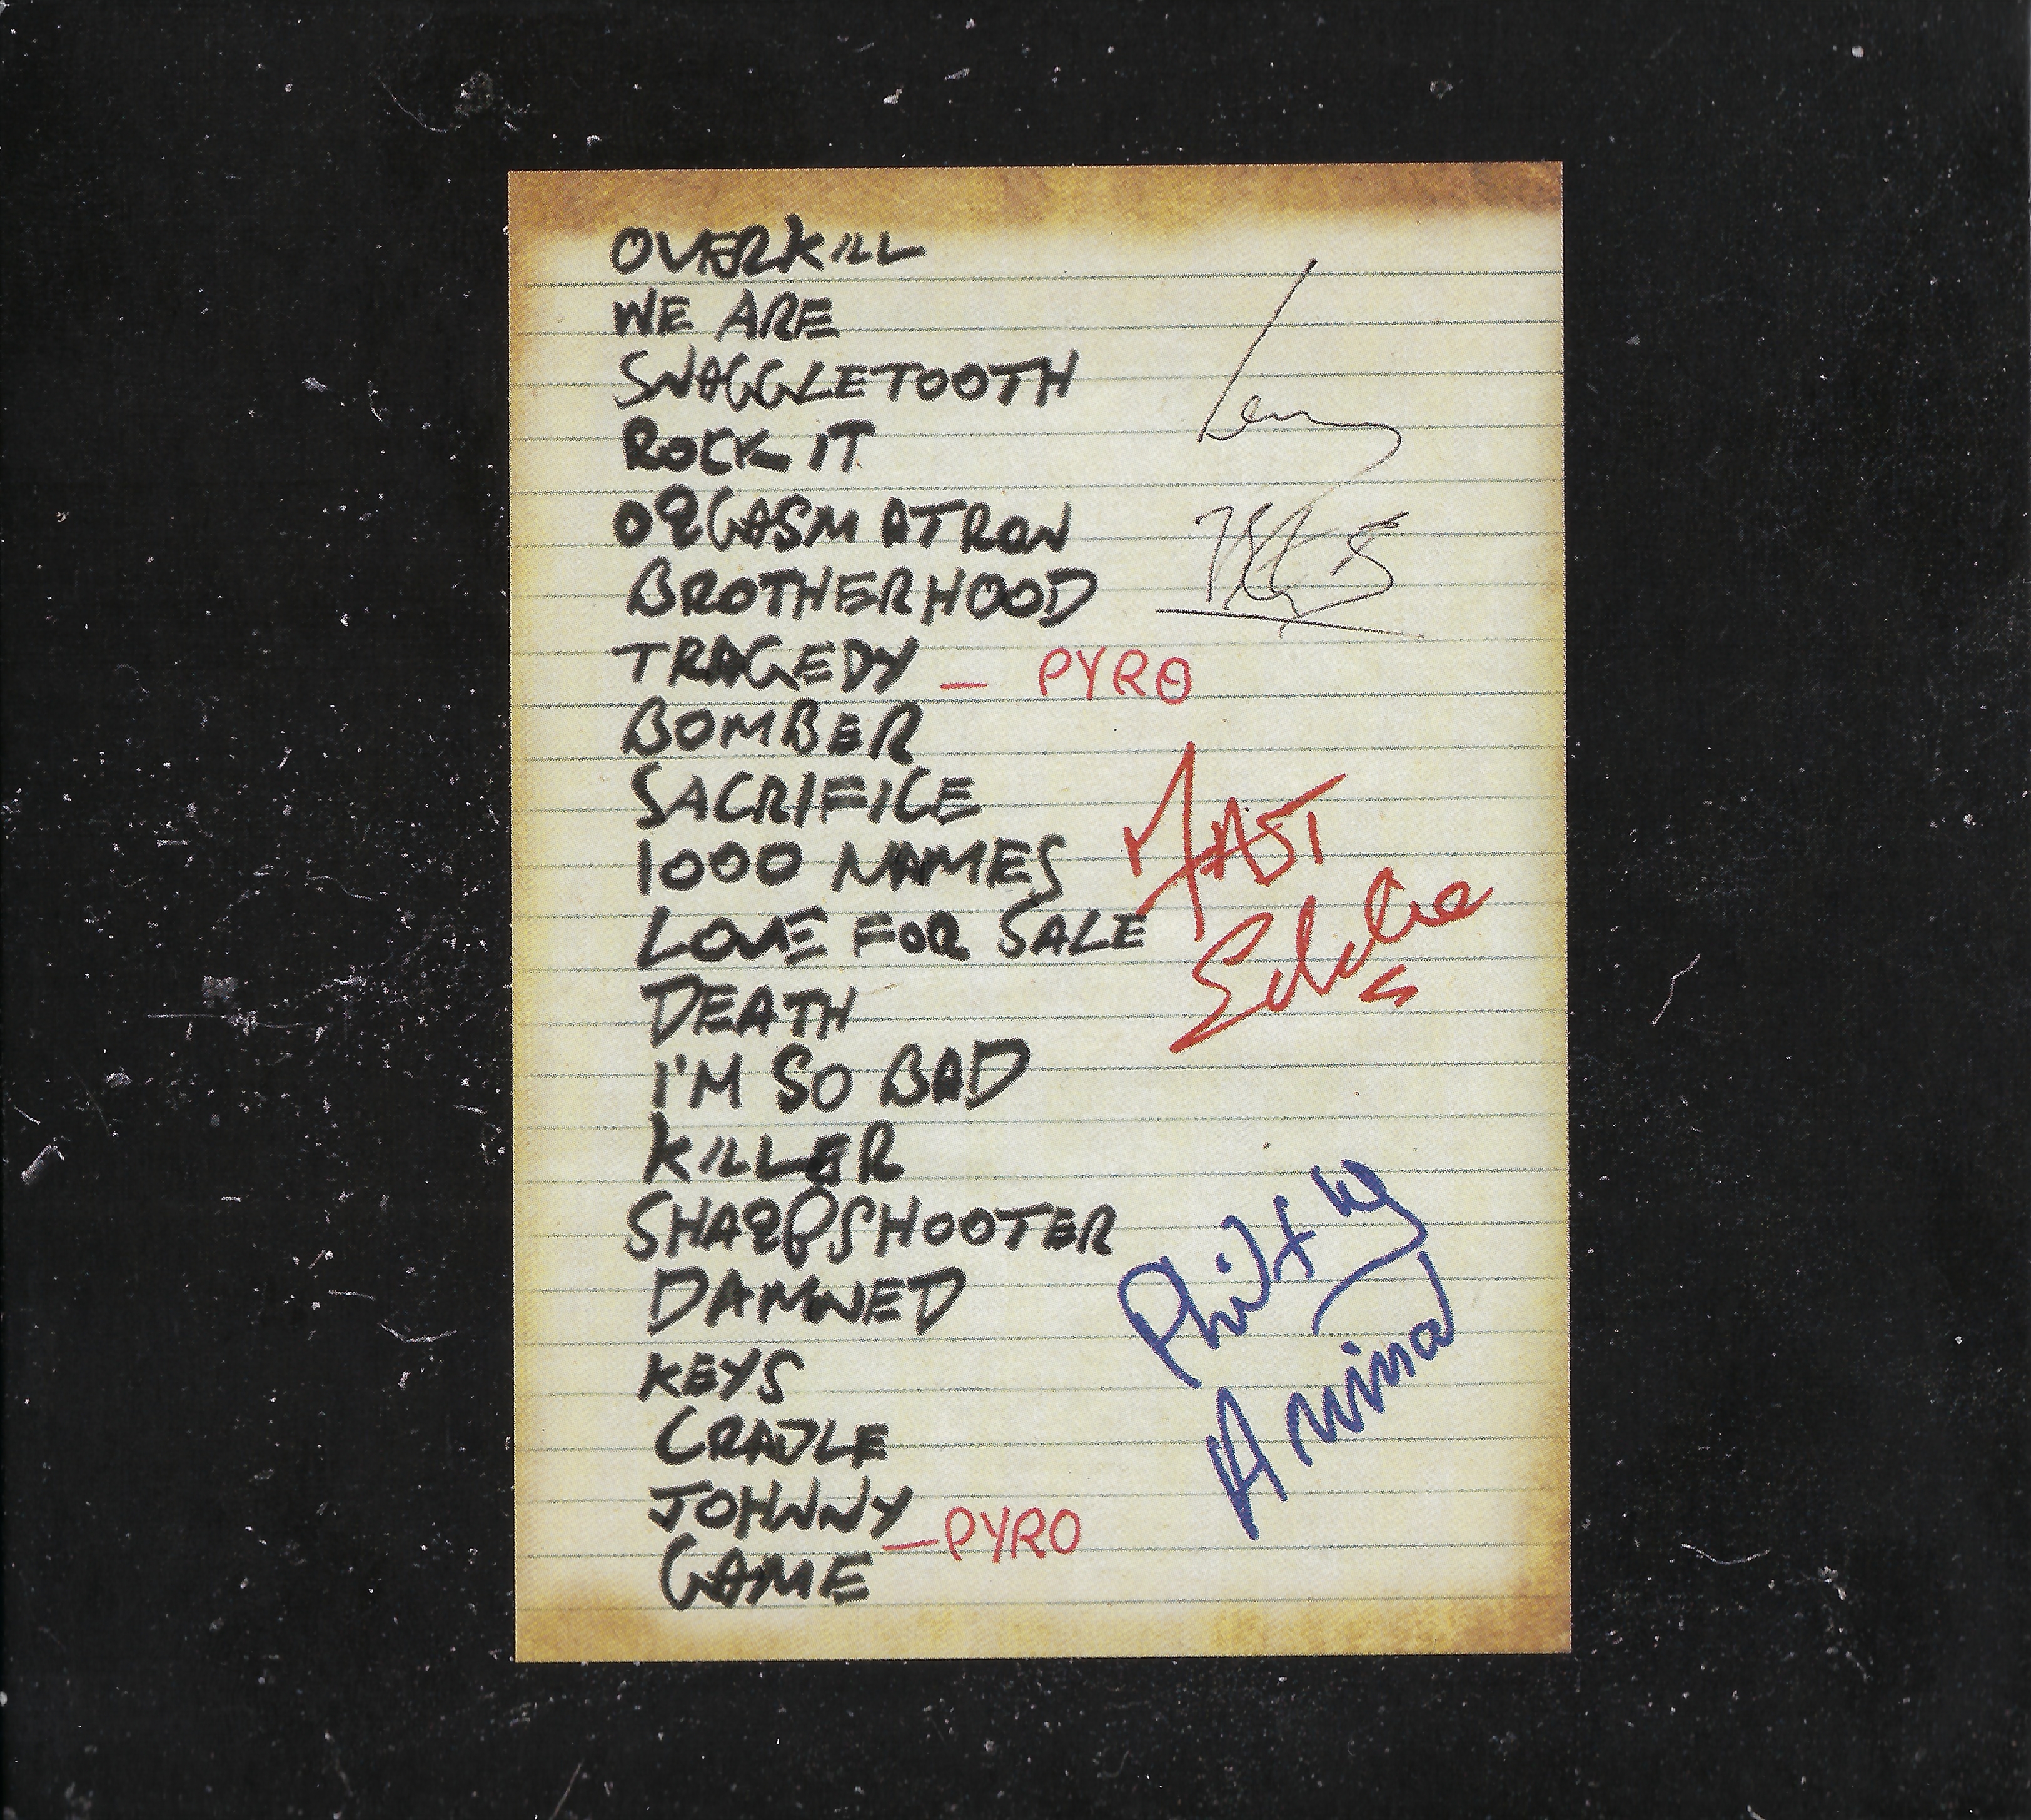 OVERKILL
WE ARE
SNAGGLETOOTH
ROCK IT
ORGASMATRON
BROTHERHOOD
TRAGEDY – PYRO
BOMBER
SACRIFICE
1000 NAMES
LOVE FOR SALE
DEATH
I'M SO BAD
KILLER
SHARPSHOOTER
DAMNED
KEYS
CRADLE
JOHNNY
GAME – PYRO
Lemmy
FAST
Eddie
Philthy
Animal